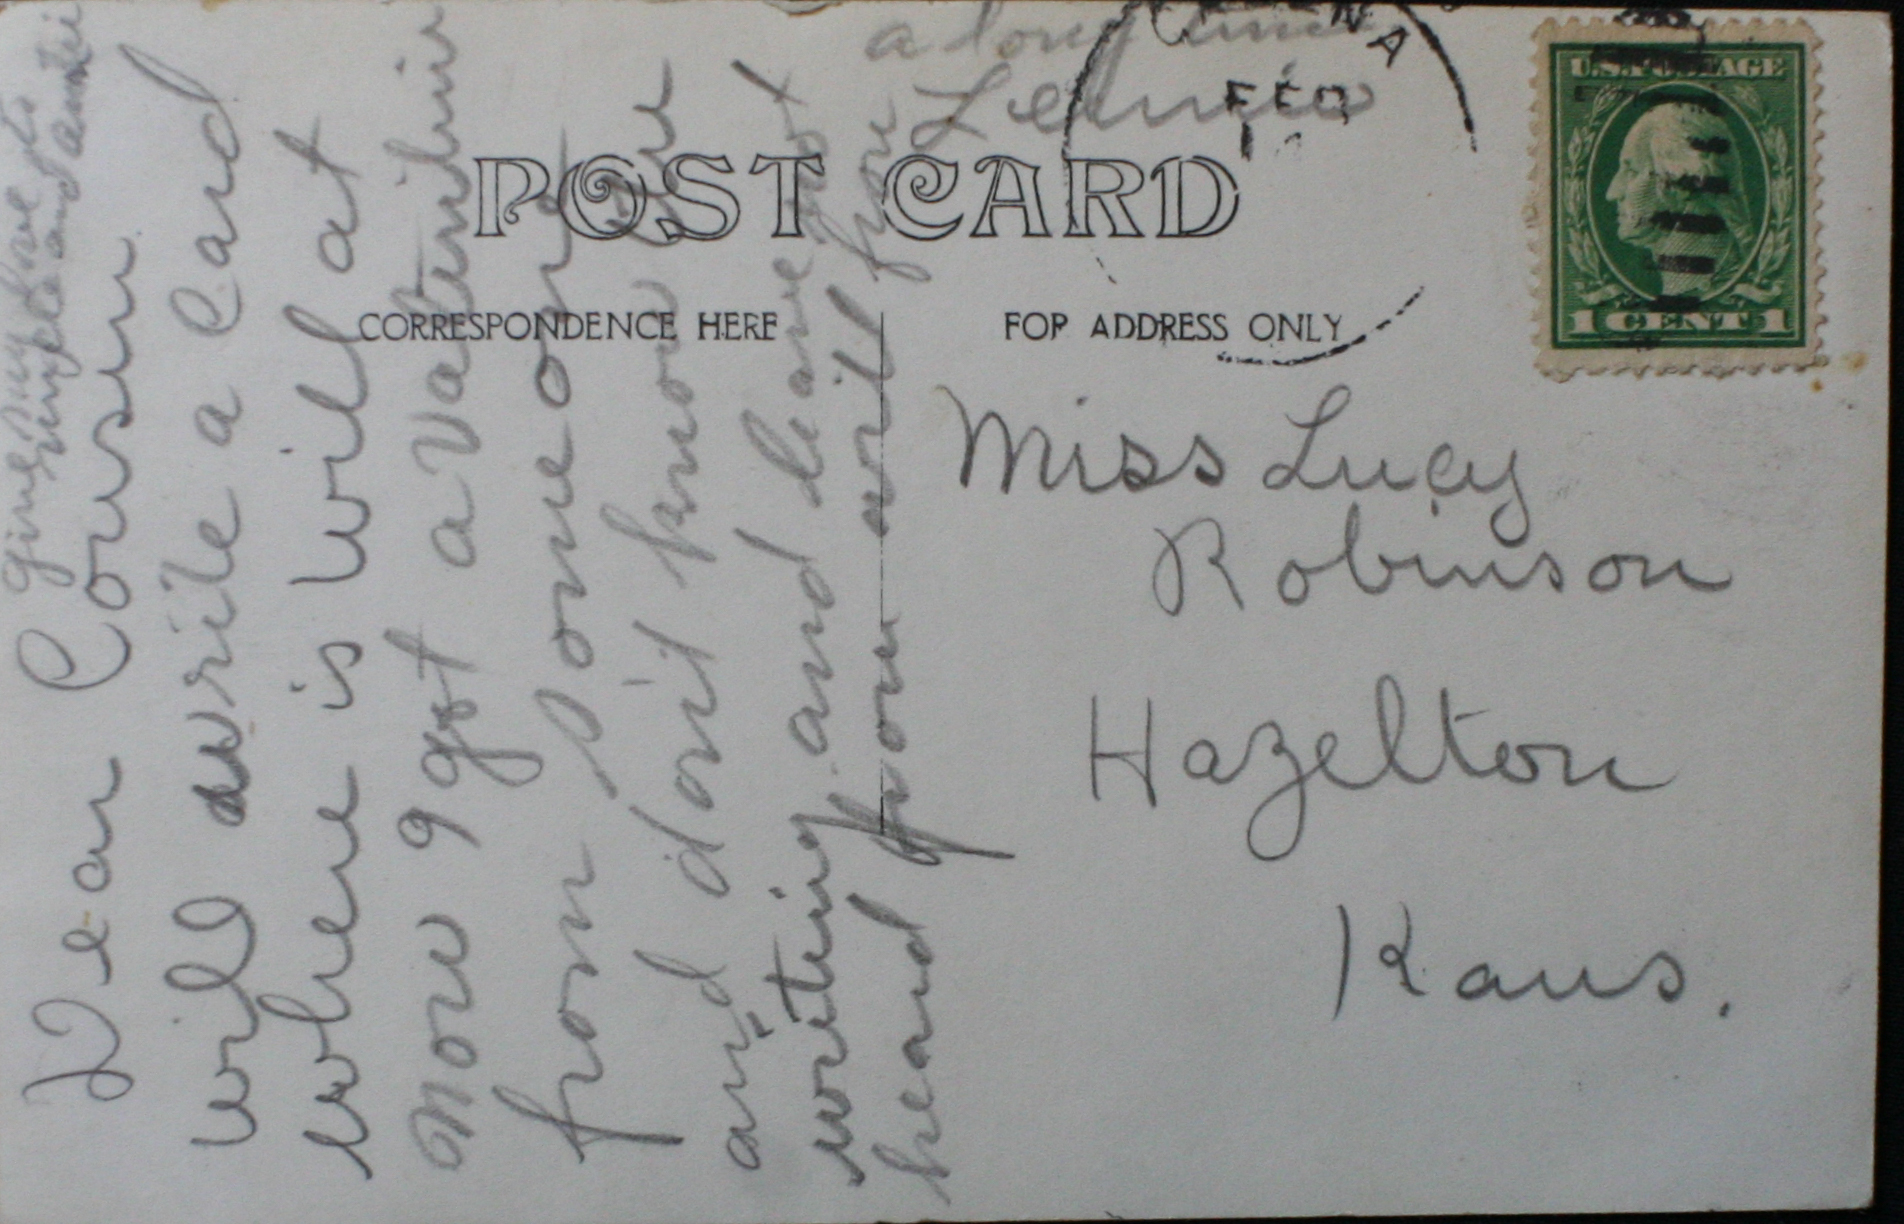 POST CARD
CORRESPONDENCE HERE
FOR ADDRESS ONLY
U.S. POSTAGE
1 CENT 1
FEB
Miss Lucy
Robinson
Hazelton
Kans.
Dear Cousin
will write a Card
where is Will at
now I got a
from Some one
and dont know
writing and
heard from
a long time
give my love to
and auntie